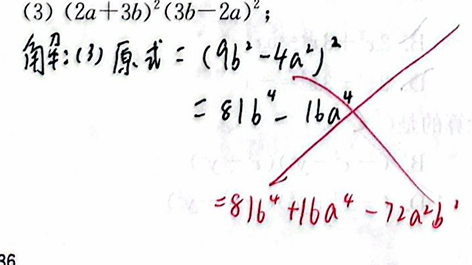 (3) (2a+3b)²(3b-2a)²;
解:(3) 原式 = (9b²-4a²)²
= 81b⁴ - 16a⁴
= 81b⁴ + 16a⁴ - 72a²b²
36